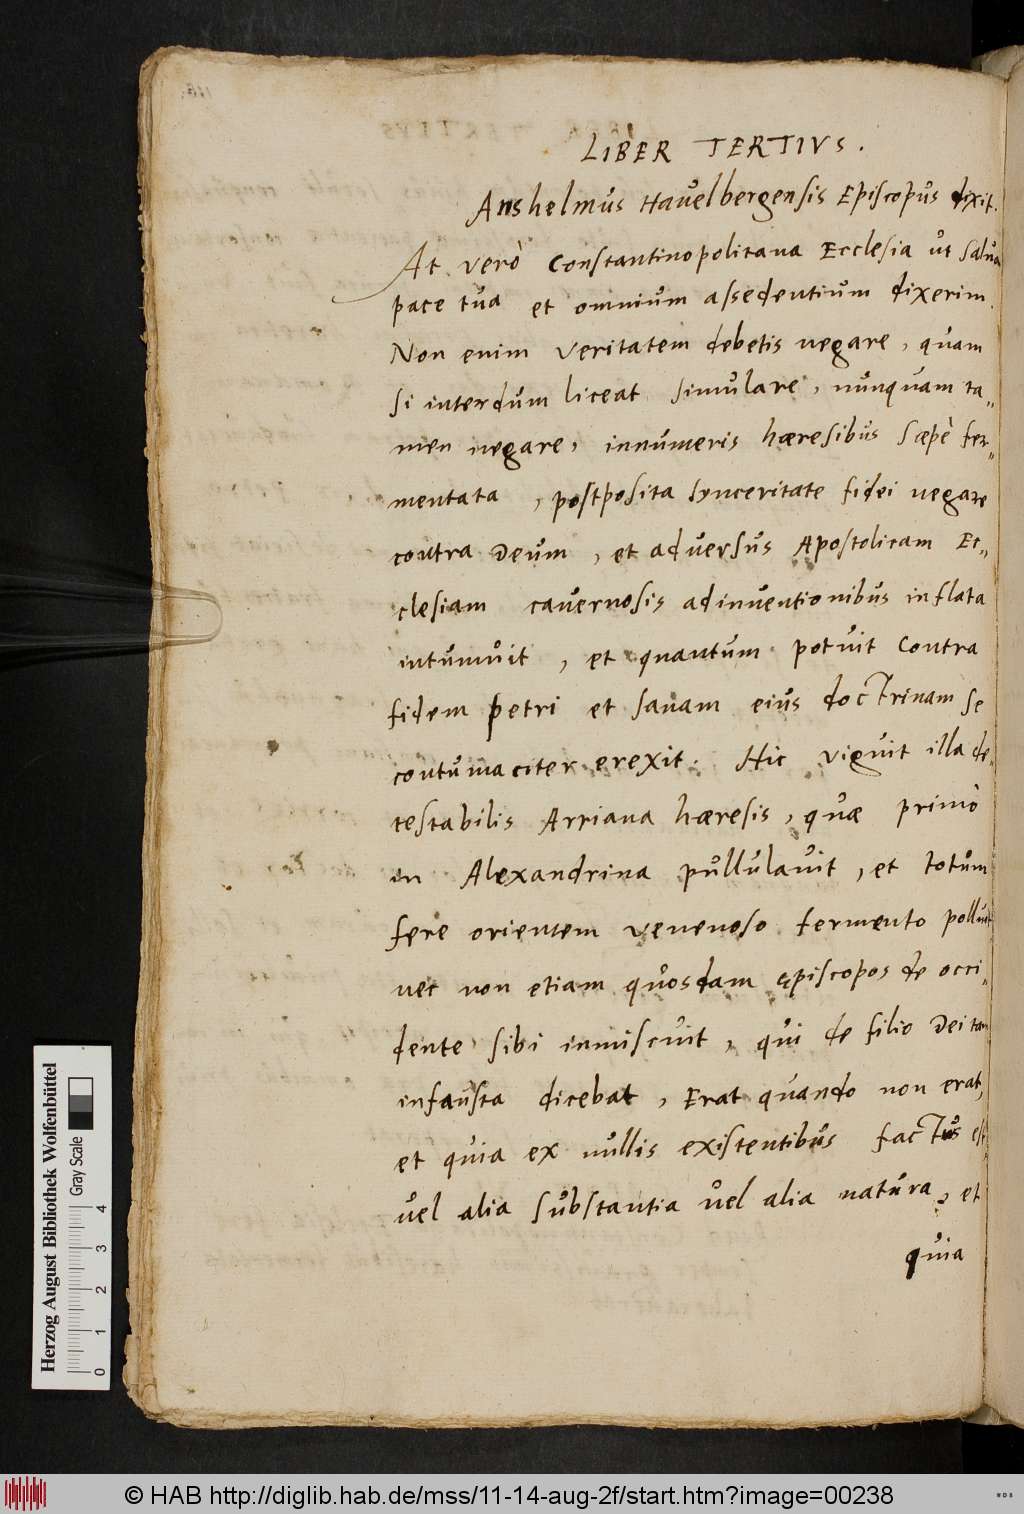 LIBER TERTIVS.
Anshelmus Havelbergensis Episcopus dixit.
At verò Constantinopolitana Ecclesia ut salva
pace tua et omnium assedentium dixerim.
Non enim veritatem debetis negare, quam
si interdum liceat simulare, nunquam ta„
men negare, innumeris hæresibus sæpè fer„
mentata, postposita synceritate fidei negare
contra Deum, et adversus Apostolicam Ec„
clesiam cavernosis adinventionibus inflata
intumuit, et quantum potuit contra
fidem petri et sanam eius doctrinam se
contumaciter erexit. Hic viguit illa de„
testabilis Arriana hæresis, quæ primò
in Alexandrina pullulavit, et totum
fere orientem venenoso fermento polluit
nec non etiam quosdam ępiscopos de occi„
dente sibi inmiscuit, qui de filio Dei tam
infausta dicebat, Erat quando non erat,
et quia ex nullis existentibus factus est
vel alia substantia vel alia natura, et
quia
Herzog August Bibliothek Wolfenbüttel
Gray Scale
0 1 2 3 4
© HAB http://diglib.hab.de/mss/11-14-aug-2f/start.htm?image=00238